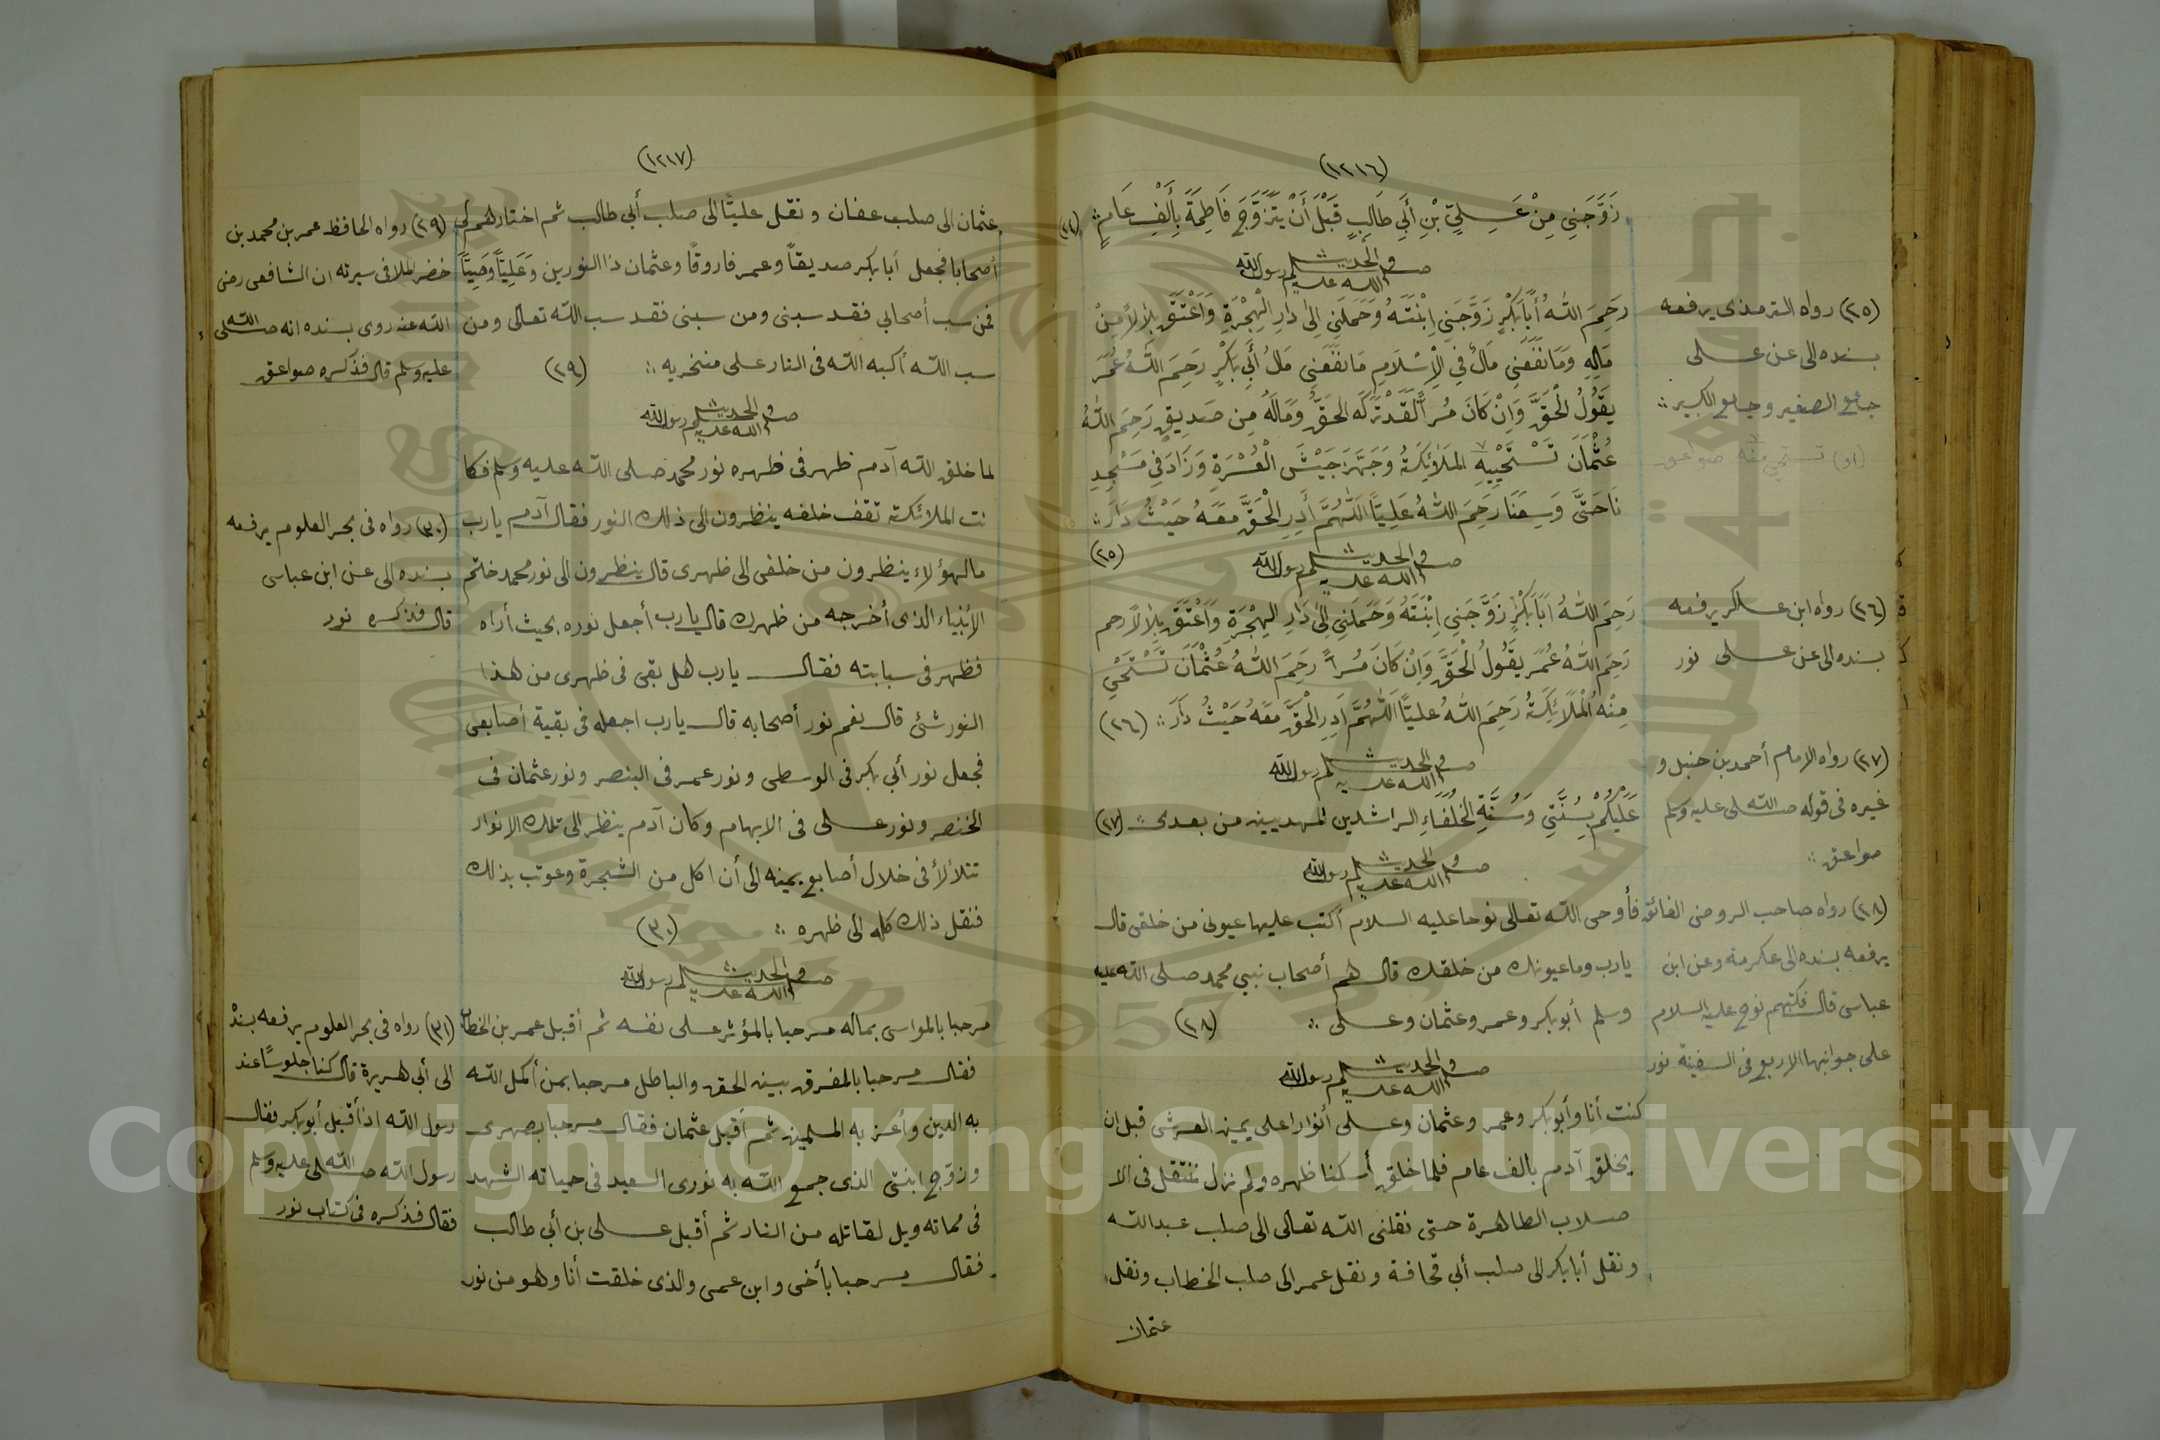 (١٢١٦)
زَوَّجَنِي مِنْ عَلِيِّ بْنِ أَبِي طَالِبٍ قَبْلَ أَنْ يَتَزَوَّجَ فَاطِمَةَ بِأَلْفِ عَامٍ
وفي الحديث رسول الله صلى الله عليه وسلم
رَحِمَ اللهُ أَبَا بَكْرٍ زَوَّجَنِي اِبْنَتَهُ وَحَمَلَنِي إِلى دَارِ الْهِجْرَةِ وَاَعْتَقَ بِلَالاً مِنْ
مَالِهِ وَمَا نَفَعَنِي مَالٌ فِي الْإِسْلَامِ مَا نَفَعَنِي مَالُ أَبِي بَكْرٍ رَحِمَ اللهُ عُمَرَ
يَقُوْلُ الْحَقَّ وَاِنْ كَانَ مُرّاً لَقَدْ تَرَكَه الحَقُّ وَمَالَهُ مِن صَدِيقٍ رَحِمَ اللهُ
عُثْمَانَ تَسْتَحْيِيهِ المَلَائِكَةُ وَجَهَّزَ جَيْشَ الْعُسْرَةِ وَزَادَ فِي مَسْجِدِ
نَا حَتَّى وَسِعَنَا رَحِمَ اللهُ عَلِيّاً اَللّهُمَّ أَدِرِ الْحَقَّ مَعَهُ حَيْثُ دَارَ
(٢٥)
وفي الحديث رسول الله صلى الله عليه وسلم
رَحِمَ اللهُ اَبَا بَكْرٍ زَوَّجَنِي اِبْنَتَهُ وَحَمَلَنِي إِلىٰ دَارِ الهِجْرَةِ وَاَعْتَقَ بِلَالاً رحم
رَحِمَ اللهُ عُمَرَ يَقُولُ الْحَقَّ وَاِنْ كَانَ مُراً رَحِمَ اللهُ عُثْمَانَ تَسْتَحْيِ
مِنْهُ الْمَلَائِكَةُ رَحِمَ اللهُ عليّاً اَللّهُمَّ اَدِرِ الْحَقَّ مَعَهُ حَيْثُ دَارَ (٢٦)
وفي الحديث رسول الله صلى الله عليه وسلم
عَلَيْكُمْ بِسُنَّتِي وَسُنَّةِ الْخُلَفَاءِ الراشدين المهديين من بعدى (٢٧)
وفي الحديث رسول الله صلى الله عليه وسلم
فأوحى الله تعالى نوحا عليه السلام أكتب عليها عيونى من خلقى قال
يارب وما عيونك من خلقك قال هم أصحاب نبيي محمد صلى الله عليه
وسلم أبو بكر وعمر وعثمان وعلى (٢٨)
وفي الحديث رسول الله صلى الله عليه وسلم
كنت أنا وأبوبكر وعمر وعثمان وعلى أنوارا على يمين العرش قبل ان
يخلق آدم بالف عام فلما خلق أسكنا ظهره ولم نزل ننتقل فى الا
صلاب الطاهرة حتى نقلنى الله تعالى الى صلب عبدالله
ونقل أبابكر الى صلب أبي قحافة ونقل عمر الى صلب الخطاب ونقل
عثمان
(٢٥) رواه الترمذى يرفعه
بسنده الى عن على
جامع الصغير وجامع الكبير
(٢٦) رواه ابن عساكر يرفعه
بسنده الى عن على نور
(٢٧) رواه الامام أحمد بن حنبل و
غيره فى قوله صلى الله عليه وسلم
صواعق
(٢٨) رواه صاحب الروض الفائق
يرفعه بسنده الى عكرمة وعن ابن
عباس قال فكتبهم نوح عليه السلام
على جوانبها الاربع فى السفينة نور
(١٢١٧)
عثمان الى صلب عفان ونقل عليّا الى صلب أبي طالب ثم اختارلهم لي
أصحابا فجعل أبا بكر صديقاً وعمر فاروقًا وعثمان ذا النورين وَعَلِيّاً وَصِيّاً
فمن سب أصحابي فقد سبنى ومن سبنى فقد سب الله تعالى ومن
سب الله أكبه الله فى النار على منخريه (٢٩)
وفي الحديث رسول الله صلى الله عليه وسلم
لما خلق الله آدم ظهر فى ظهره نور محمد صلى الله عليه وسلم فكا
نت الملائكة تقف خلفه ينظرون الى ذلك النور فقال آدم يارب
ما لهؤلاء ينظرون من خلفى الى ظهرى قال ينظرون الى نور محمد خاتم
الأنبياء الذى أخرجه من ظهرك قال يارب أجعل نوره بحيث أراه
فظهر فى سبابته فقال يارب هل بقى فى ظهرى من هذا
النور شئ قال نعم نور أصحابه قال يارب اجعله فى بقية أصابعى
فجعل نور أبي بكر فى الوسطى ونور عمر فى البنصر ونور عثمان فى
الخنصر ونور على فى الابهام وكان آدم ينظر الى تلك الانوار
تتلألأ فى خلال أصابع يمينه الى أن اكل من الشجرة وعوتب بذلك
فنقل ذلك كله الى ظهره (٣٠)
وفي الحديث رسول الله صلى الله عليه وسلم
مرحبا بالمواسى بماله مرحبا بالمؤثر على نفسه ثم أقبل عمر بن الخطاب
فقال مرحبا بالمفرق بين الحق والباطل مرحبا بمن أكمل الله
به الدين وأعز به المسلمين ثم أقبل عثمان فقال مرحبا بصهرى
وزوج ابنتى الذى جمع الله به نورى السعيد فى حياته الشهيد
فى مماته ويل لقاتله من النار ثم أقبل على بن أبي طالب
فقال مرحبا بأخى وابن عمى والذى خلقت أنا وهو من نور
(٢٩) رواه الحافظ عمر بن محمد بن
خضر الملا فى سيرته ان الشافعى رضى
الله عنه روى بسنده انه صلى الله
عليه وسلم قال فذكره صواعق
(٣٠) رواه فى بحر العلوم يرفعه
بسنده الى عن ابن عباس
قال فذكره نور
(٣١) رواه فى بحر العلوم يرفعه بسند
الى أبي هريرة قال كنا جلوسًا عند
رسول الله اذ أقبل أبو بكر فقال
رسول الله صلى الله عليه وسلم
فقال فذكره فى كتاب نور
Copyright © King Saud University
1957